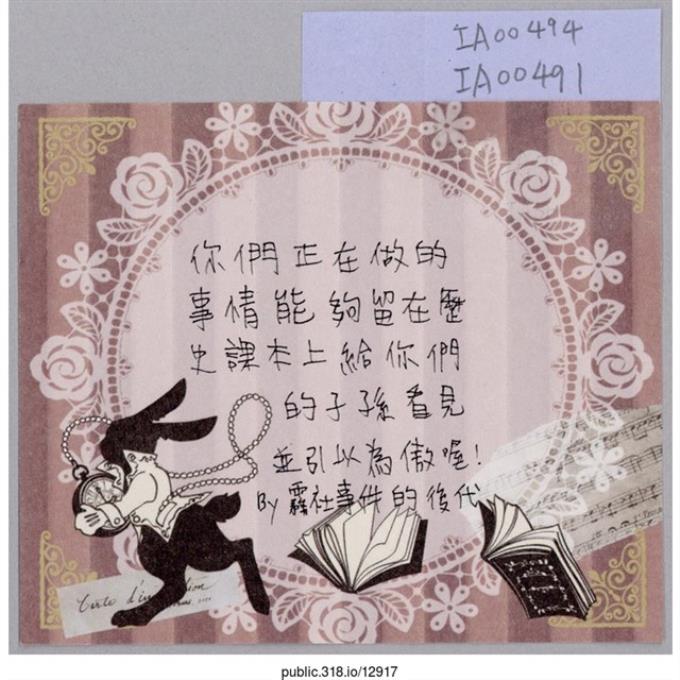 IA00494
IA00491
你們正在做的
事情能夠留在歷
史課本上給你們
的子孫看見
並引以為傲喔!
By 霧社事件的後代
public.318.io/12917